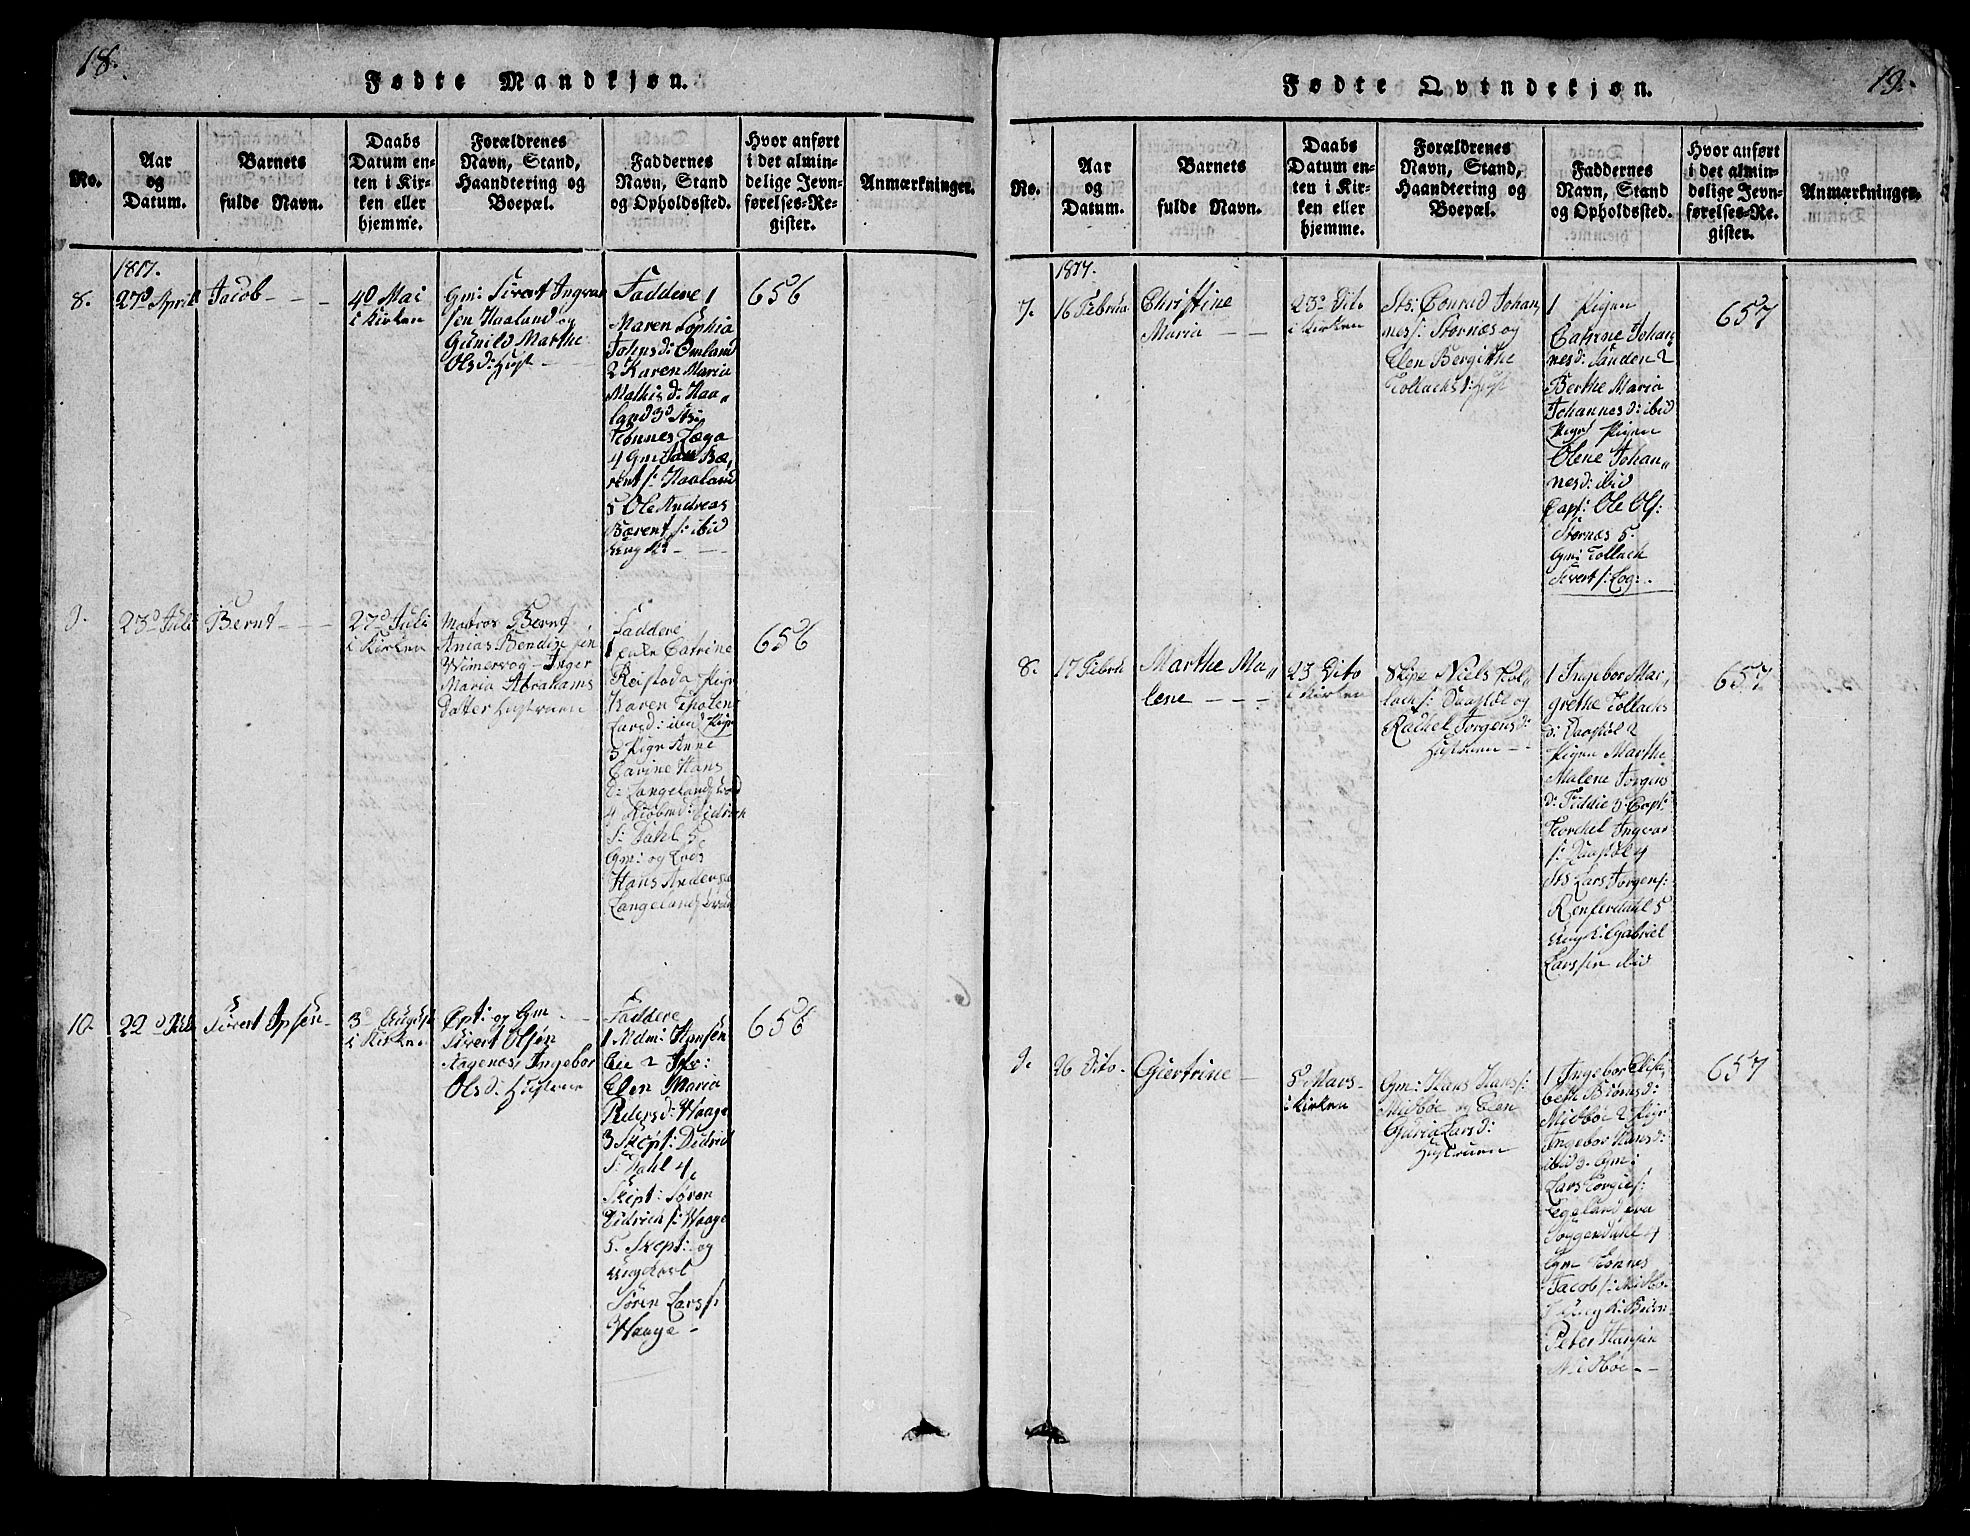 18.
Fødte Mandkjøn.
No.
Aar
og
Datum.
Barnets
fulde Navn.
Daabs
Datum en-
ten i Kir-
ken eller
hjemme.
Forældrenes
Navn, Stand,
Haandtering og
Boepæl.
Faddernes
Navn, Stand
og Opholdssted.
Hvor anført
i det almin-
delige Jevn-
førelses-Re-
gister.
Anmærkninger.
1817.
8.
27d April
Jacob
4d Mai
i Kirken
Gm: Sivert Ingvar
sen Haaland og
Gunild Marthe
Olsd: Hust
Faddere 1
Maren Sophia
Johnsd: Omland
2 Karen Maria
Mathisd: Haa„
land 3d
4 Gm: Bæ„
rent s: Haaland
5 Ole Andreas
Bærent s: ibid
656
9.
23d Juli
Bernt
27d Juli
i Kirken
Matros Bernt
Bendixsen
og Inger
Maria Abrahams
Datter Hustruen
Faddere
1 Catrine
Karen
Larsd: ibid
3 Pige Anne
Carine Hans
d: Langeland
4 Didrich
s: Dahl 5
Gm: og Lods
Hans Anders
Langeland
656
10.
22d Juli
Sivert
3d August
i Kirken
Cpt: og Gm
Sivert Olsøn
Aagenæs Ingebor
Olsd: Hustruen
Faddere
1 Mdm: Hansen
2
Elen Maria
Pedersd: Waage
3 Skept: Didrich
s: Dahl 4
Skipt: Søren
Didrich s: Waage
5. Skept: og
Ungkarl
Søren Lars s:
Waage
656
19.
Fødte Qvindekjøn.
No.
Aar
og
Datum.
Barnets
fulde Navn.
Daabs
Datum en-
ten i Kir-
ken eller
hjemme.
Forældrenes
Navn, Stand,
Haandtering og
Boepæl.
Faddernes
Navn, Stand
og Opholdssted.
Hvor anført
i det almin-
delige Jevn-
førelses-Re-
gister.
Anmærkninger.
1817.
7.
16 Februa
Christine
Maria
23d Dito
i Kirken
Sts: Conrad Johan„
nes s: Stornæs og
Elen Bergithe
Tollachs d: Hust
1 Pigen
Catrine Johan„
nesd: Sanden 2
Berthe Maria
Johannesd: ibid
Pigen
Olene Johan„
nesd: ibid
Capt: Ole Ols:
Stornæs 5.
Gm: Tollach
Sivert s: Log:
657
8.
17 Febru
Marthe Ma„
lene
23 Dito
i Kirken
Skipr Niels Tol„
lach s: Daasøl og
Rachel Jørgensd:
Hustruen
1 Ingebor Mar„
grethe Tollachs
d: Daasøl 2
Pigen Marthe
Malene Jørgens
d: Fiddie 3 Capt:
Torchel Ingvar
s: Daasøl 4
Sts Lars Jørgen s:
5
Ungk: Gabriel
Larssen ibid
657
9.
26 Dito
Giertrine
5d Mars
i Kirken
Gm: Hans Hans s:
Midbøe og Elen
Guria Larsd:
Hustruen
1 Ingebor Elisa„
beth Biørnsd:
Midbøe 2 Pige
Ingebor Hansd:
ibid 3. Gm:
Lars
Egeland
4
Gm Tønnes
Jacob s: Midbø
Ungk:
Peter Hansen
Midbøe
657